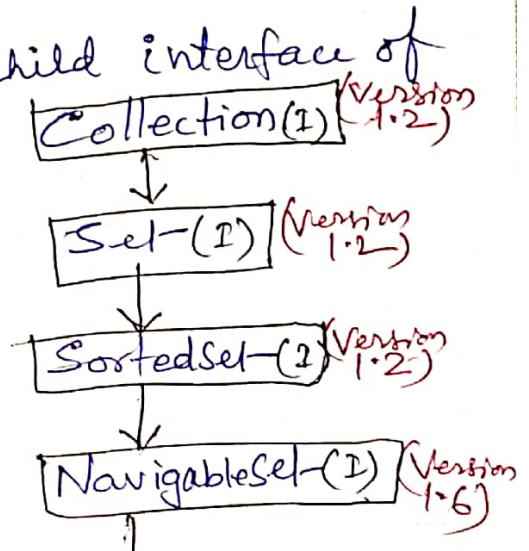 hild interface of
Collection(I) (Version
1.2)
Set-(I) (Version
1.2)
SortedSet-(I) (Version
1.2)
NavigableSet-(I) (Version
1.6)